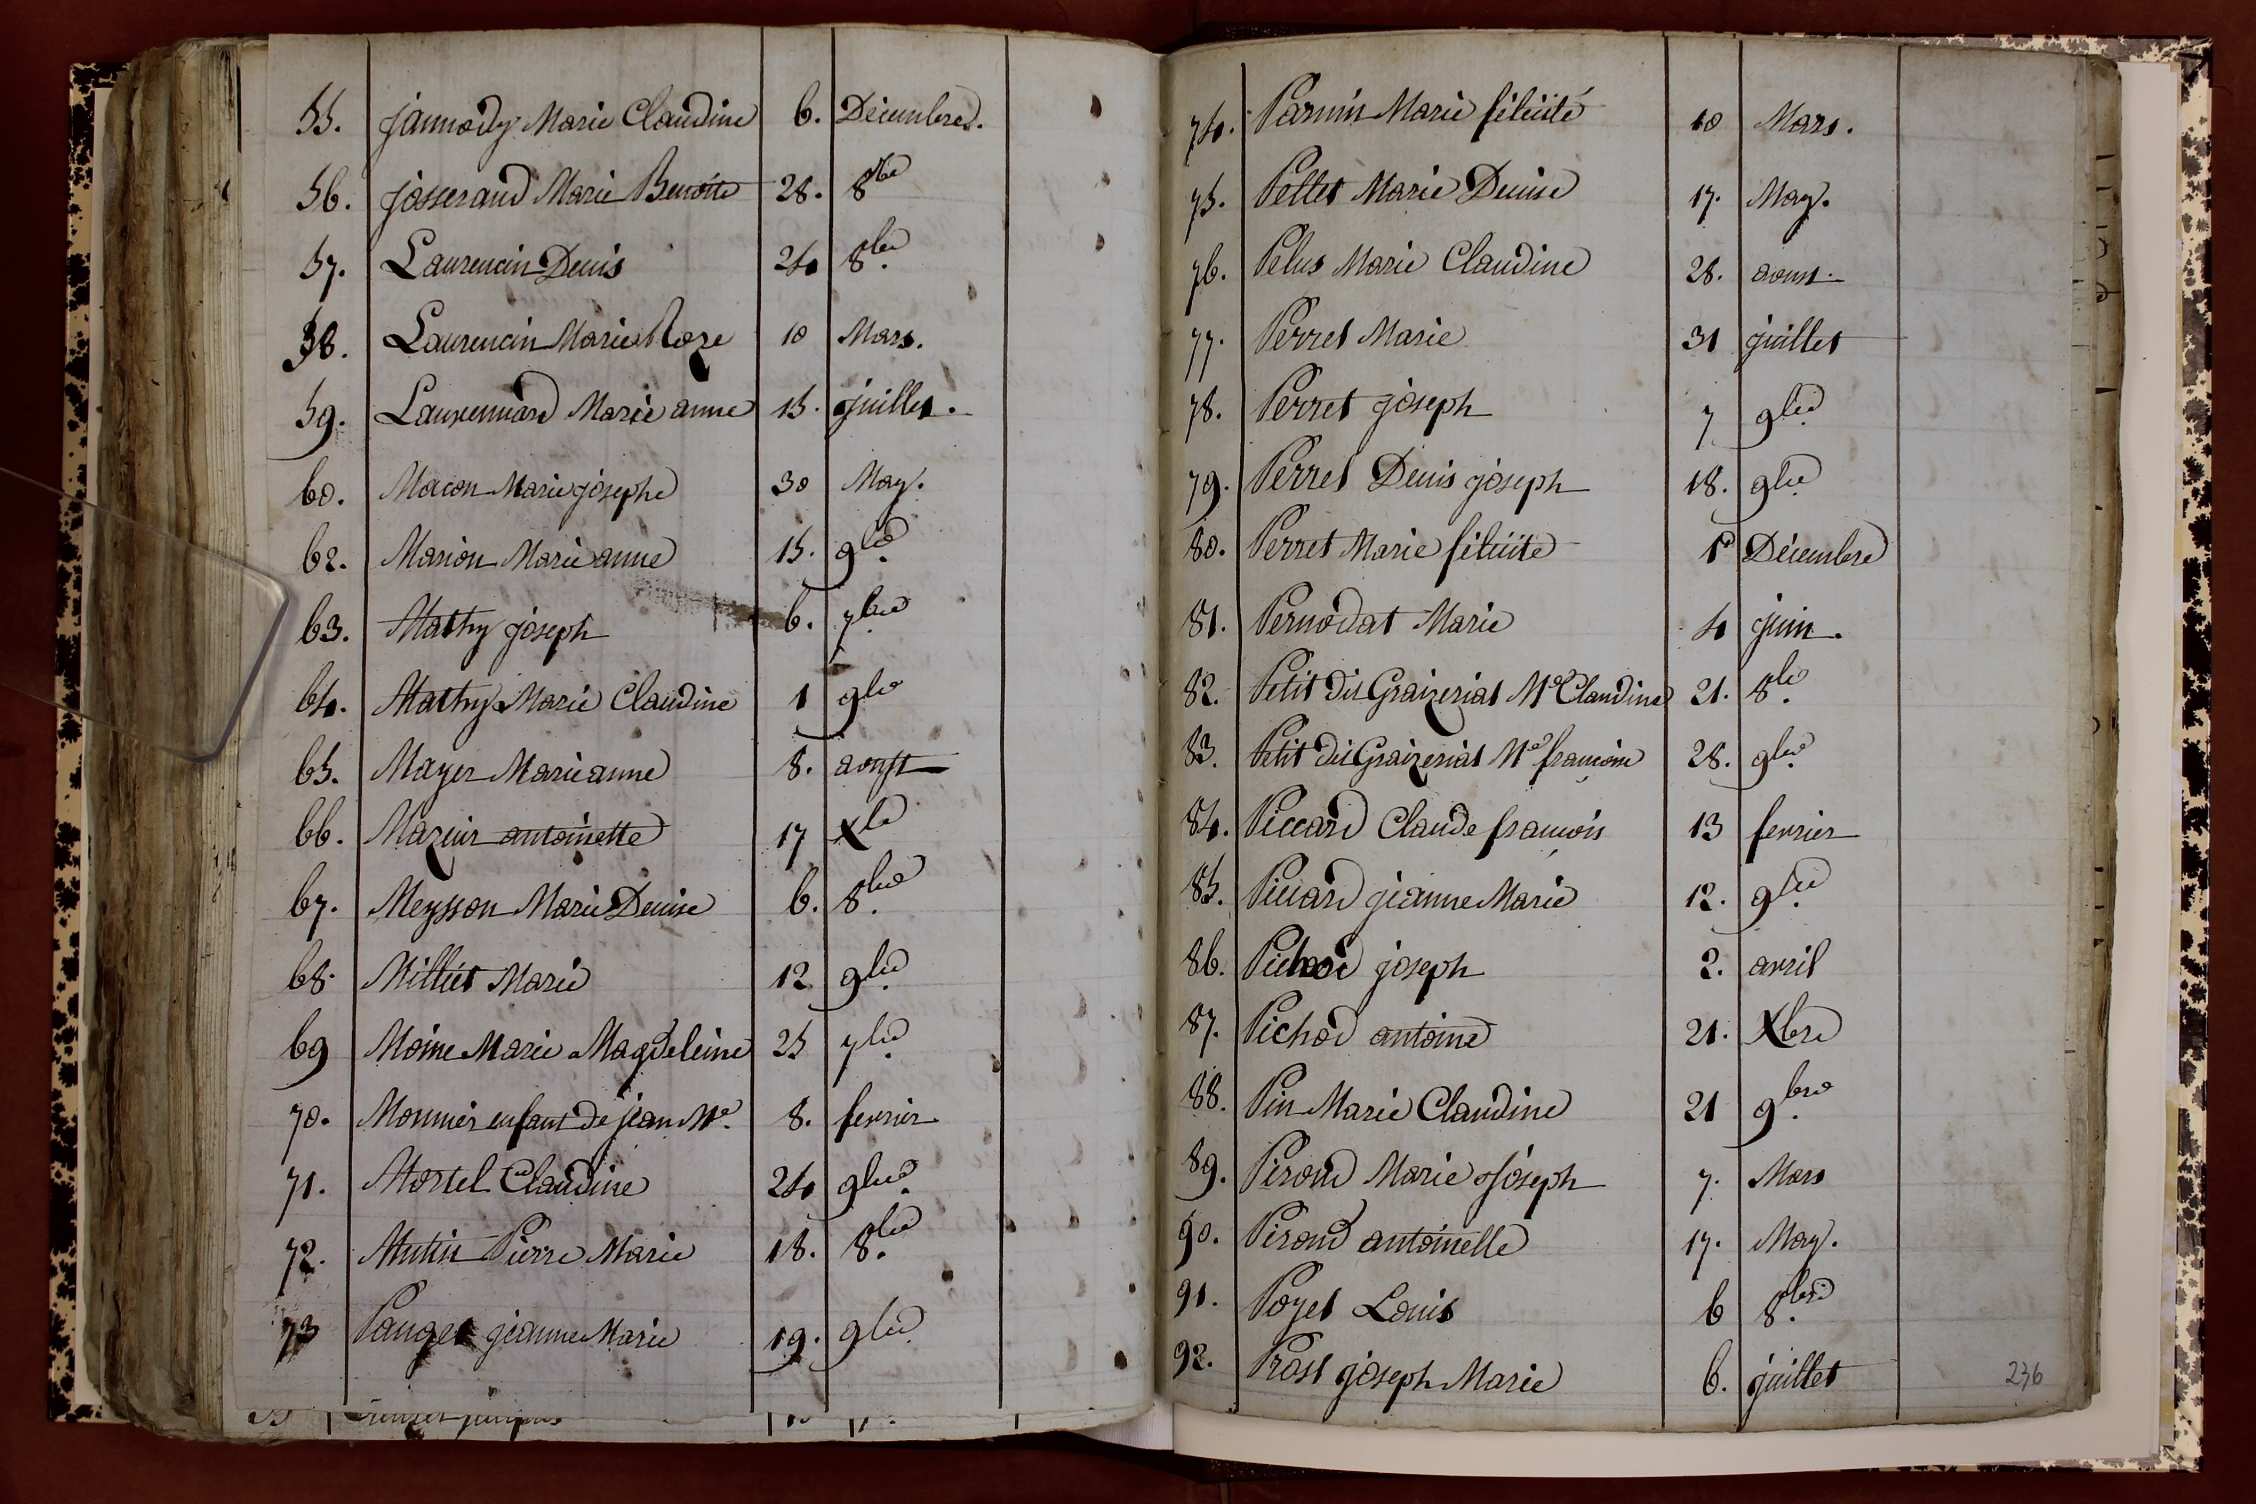 55. jannody Marie Claudine 6. Décembre.
56. josserand Marie Benoite 28. 8bre
57. Laurencin Denis 24 8bre.
58. Laurencin Marie Roze 10 Mars.
59. Marie anne 15. juillet.
60. Macon Marie josephe 30 May.
62. Marion Marie anne 15. 9bre.
63. Mathy joseph 6. 7bre
64. Mathy Marie Claudine 1 9bre
65. Mayer Marie anne 8. aoust
66. Mazuir antoinette 17 Xbre
67. Meysson Marie Denise 6. 8bre.
68. Milliet Marie 12 9bre.
69 Moine Marie Magdeleine 25 7bre.
70. Monnier enfant de jean Me. 8. fevrier
71. Mortel Claudine 24 9bre.
72. Mutin Pierre Marie 18. 8bre.
73 Panget jeanne Marie 19. 9bre.
74. Parmin Marie félicité 10 Mars.
75. Pellet Marie Denise 17. May.
76. Pelus Marie Claudine 28. aoust.
77. Perret Marie 31 juillet
78. Perret joseph 7 9bre.
79. Perret Denis joseph 18. 9bre.
80. Perret Marie félicité 1er Décembre
81. Pernodat Marie 4 juin.
82. Petit dit Graizeriat Me Claudine 21. 8bre.
83. Petit dit Graizeriat Me françoise 28. 9bre.
84. Piccard Claude françois 13 fevrier
85. Piccard jeanne Marie 12. 9bre.
86. Pichod joseph 2. avril
87. Pichod antoine 21. Xbre
88. Pin Marie Claudine 21 9bre.
89. Piroud Marie Joseph 7. Mars
90. Piroud antoinette 17. May.
91. Poyet Louis 6 8bre.
92. Prost joseph Marie 6. juillet
236